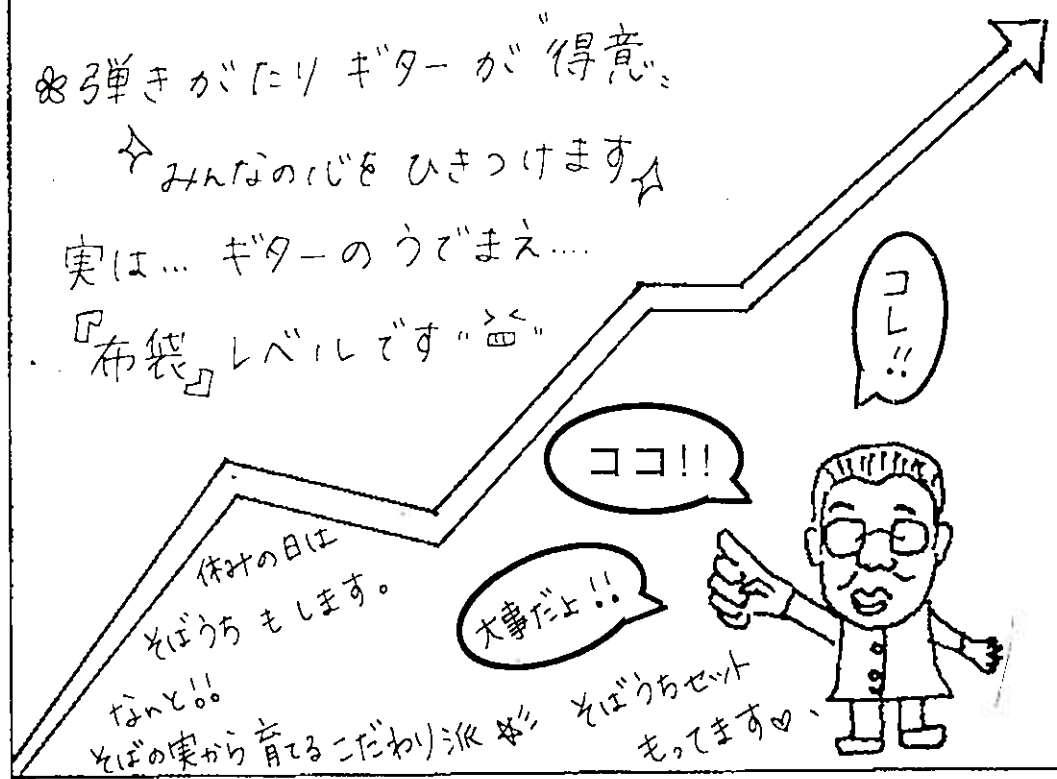 弾きがたり ギターが "得意"
みんなの心を ひきつけます
実は… ギターの うでまえ….
『布袋』レベルです
コレ!!
ココ!!
大事だよ!!
休みの日は
そばうち もします。
なんと!!
そばの実から育てるこだわり派
そばうちセット
もってます♡